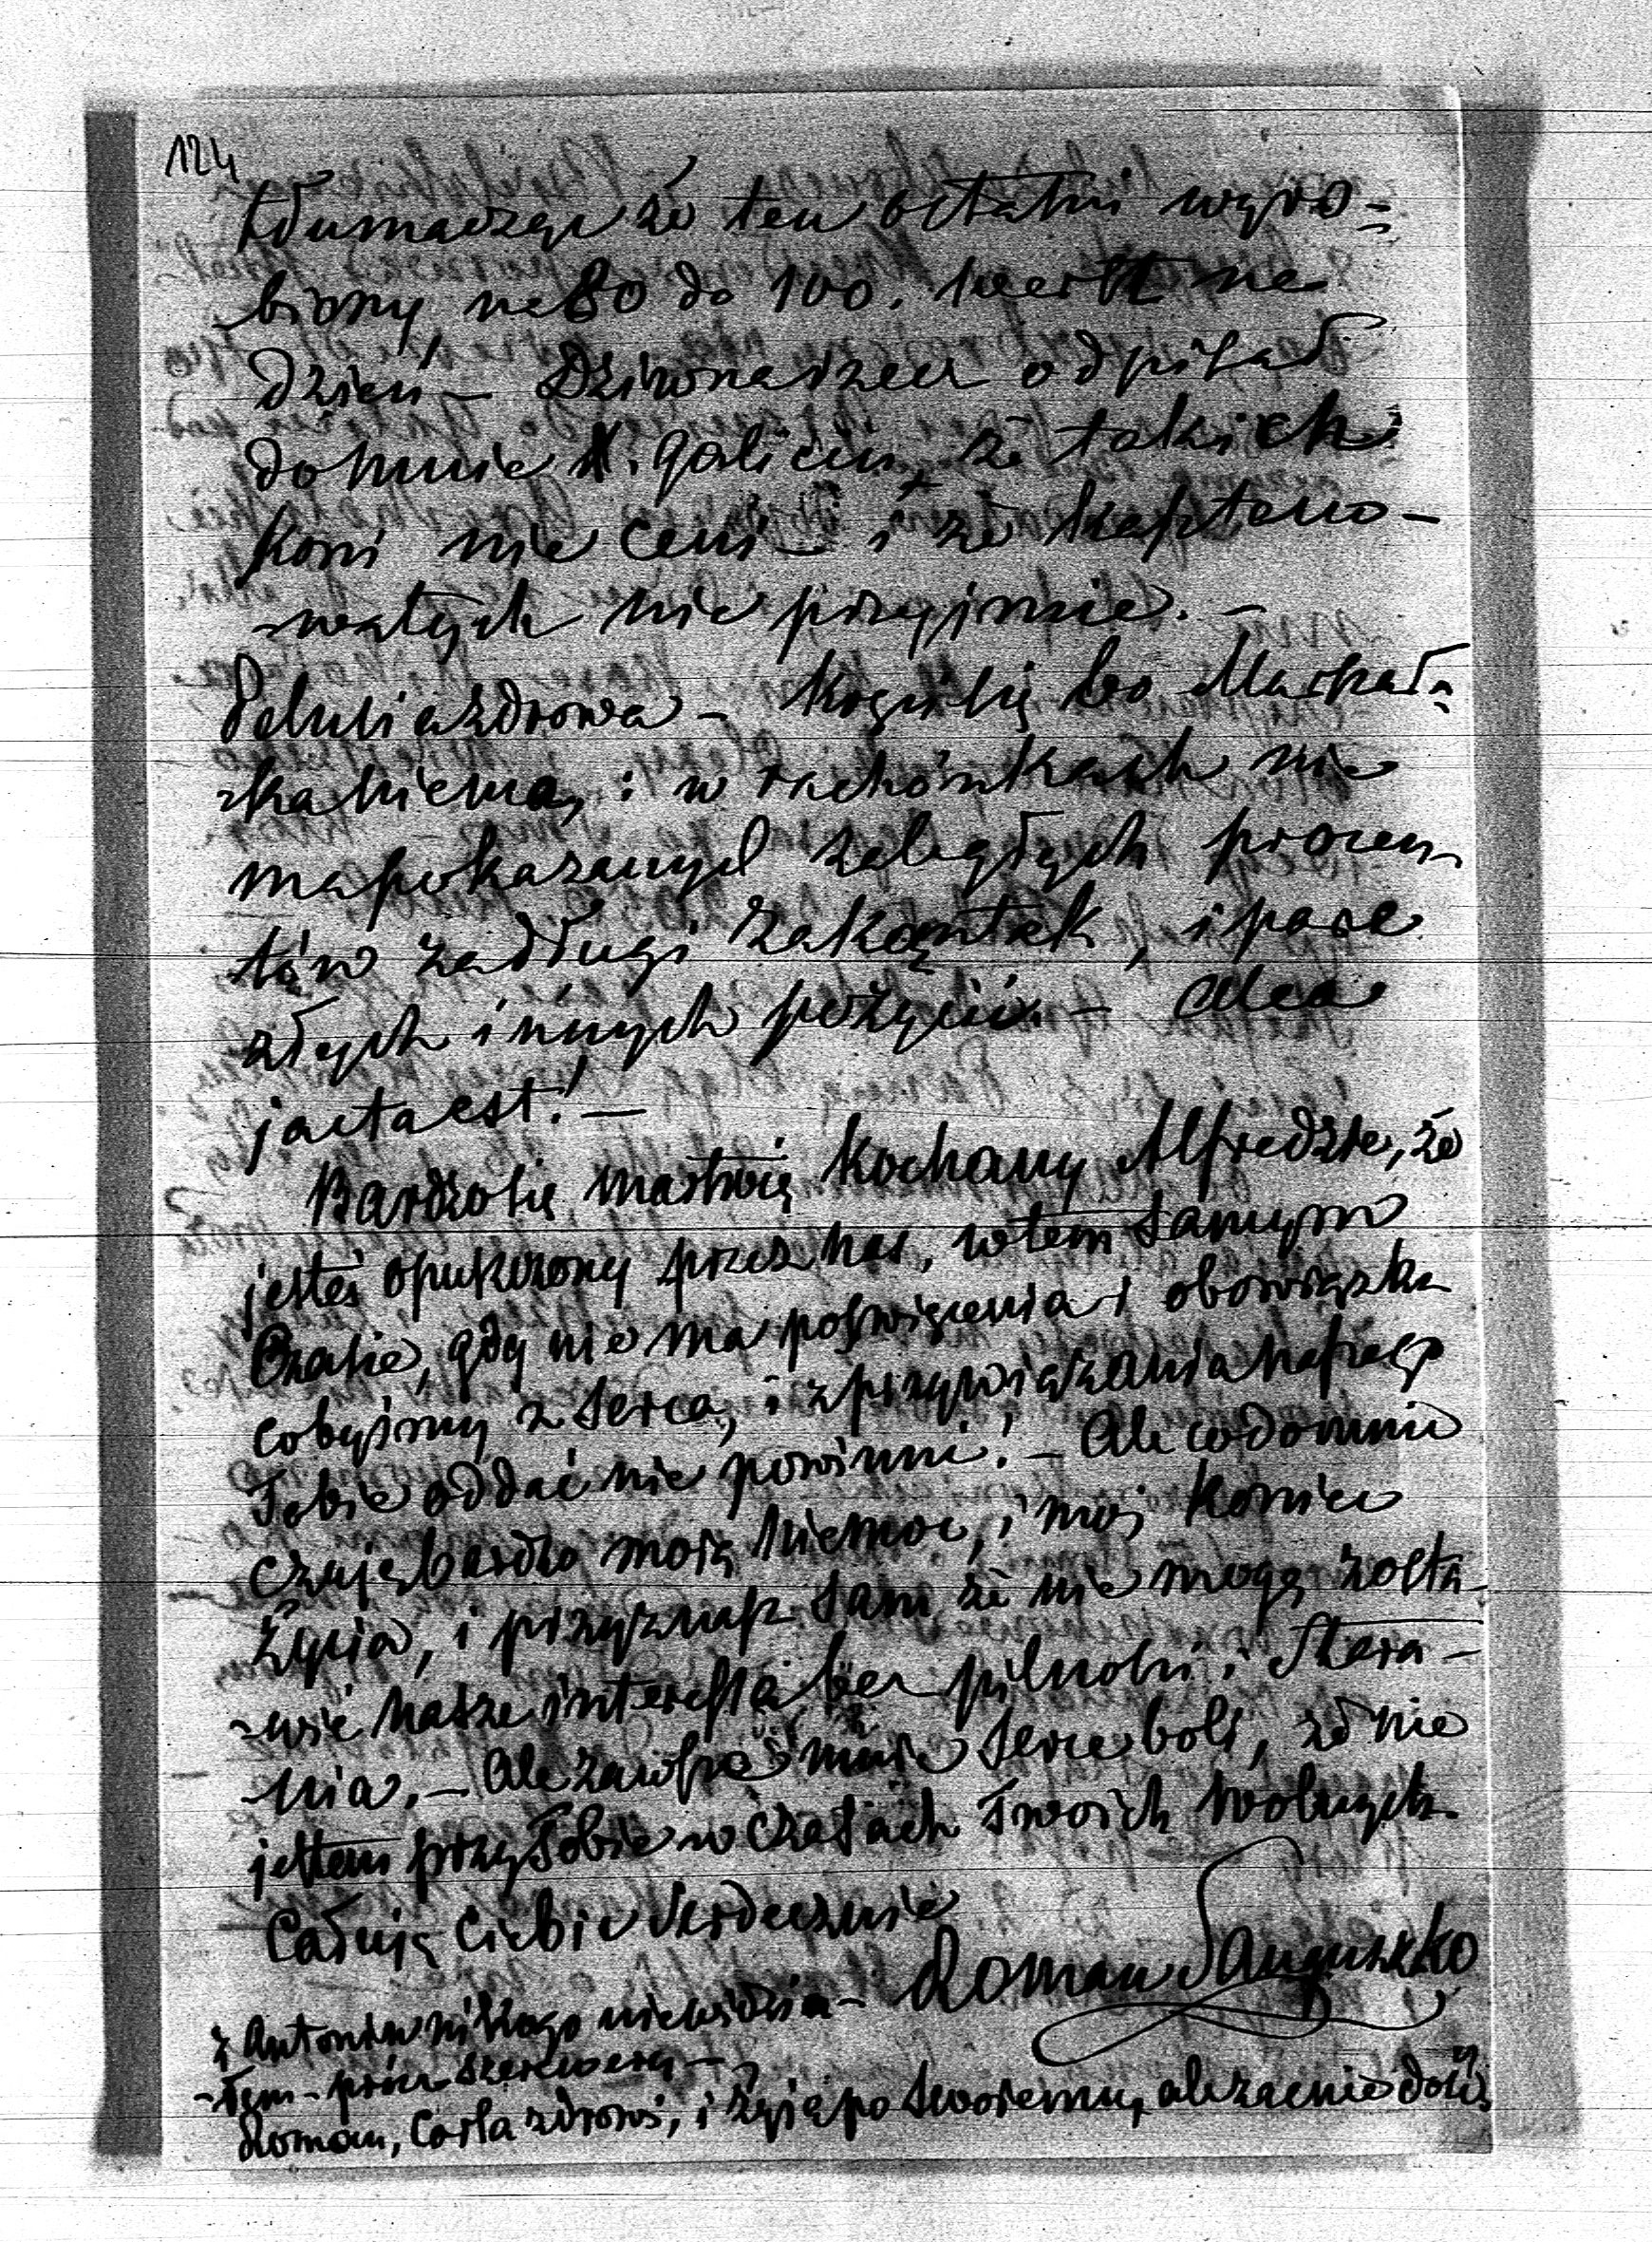 124
tłumacząc że ten ostatni wyro=
biony na 80 do 100. werst na
dzień – Dziwnarzecz odpisał
do mnie X. Galicin, że takich
koni nie ceni – i że kaptano-
-watych nie przyjmie. –
zdrowa – bo Marszał=
=kaniema, i w rachónkach nie
mapokazanych zaległych procen-
tów zadługi zakąntrak, i
złych innych pożycić. – Alea
jacta est! –
Bardzosię martwię kochany Alfredzie, że
jesteś opuszczony przez nas, wtem samym
Czasie, gdy nie ma poswięcenia i obowiązku
cobyśmy z serca, i zprzywiązania naszego
Tobie oddać nie powinni! – Ale codomnie
czuję bardzo moją niemoc, i moj koniec
życia, i przyznaję sam że nie mogę zosta-
-wić nasze interessa bez pilności i stara-
nia. – Ale zawsze mnie serce boli, że nie
jestem przy Tobie w czasach Twoich wolnych.
Całuję Ciebie serdecznie
Roman Sanguszko
z Antonin nikogo niewidzia-
-łem – prócz
Roman, Carla zdrowi, i żyią po swoiemu, ale zacnie dość